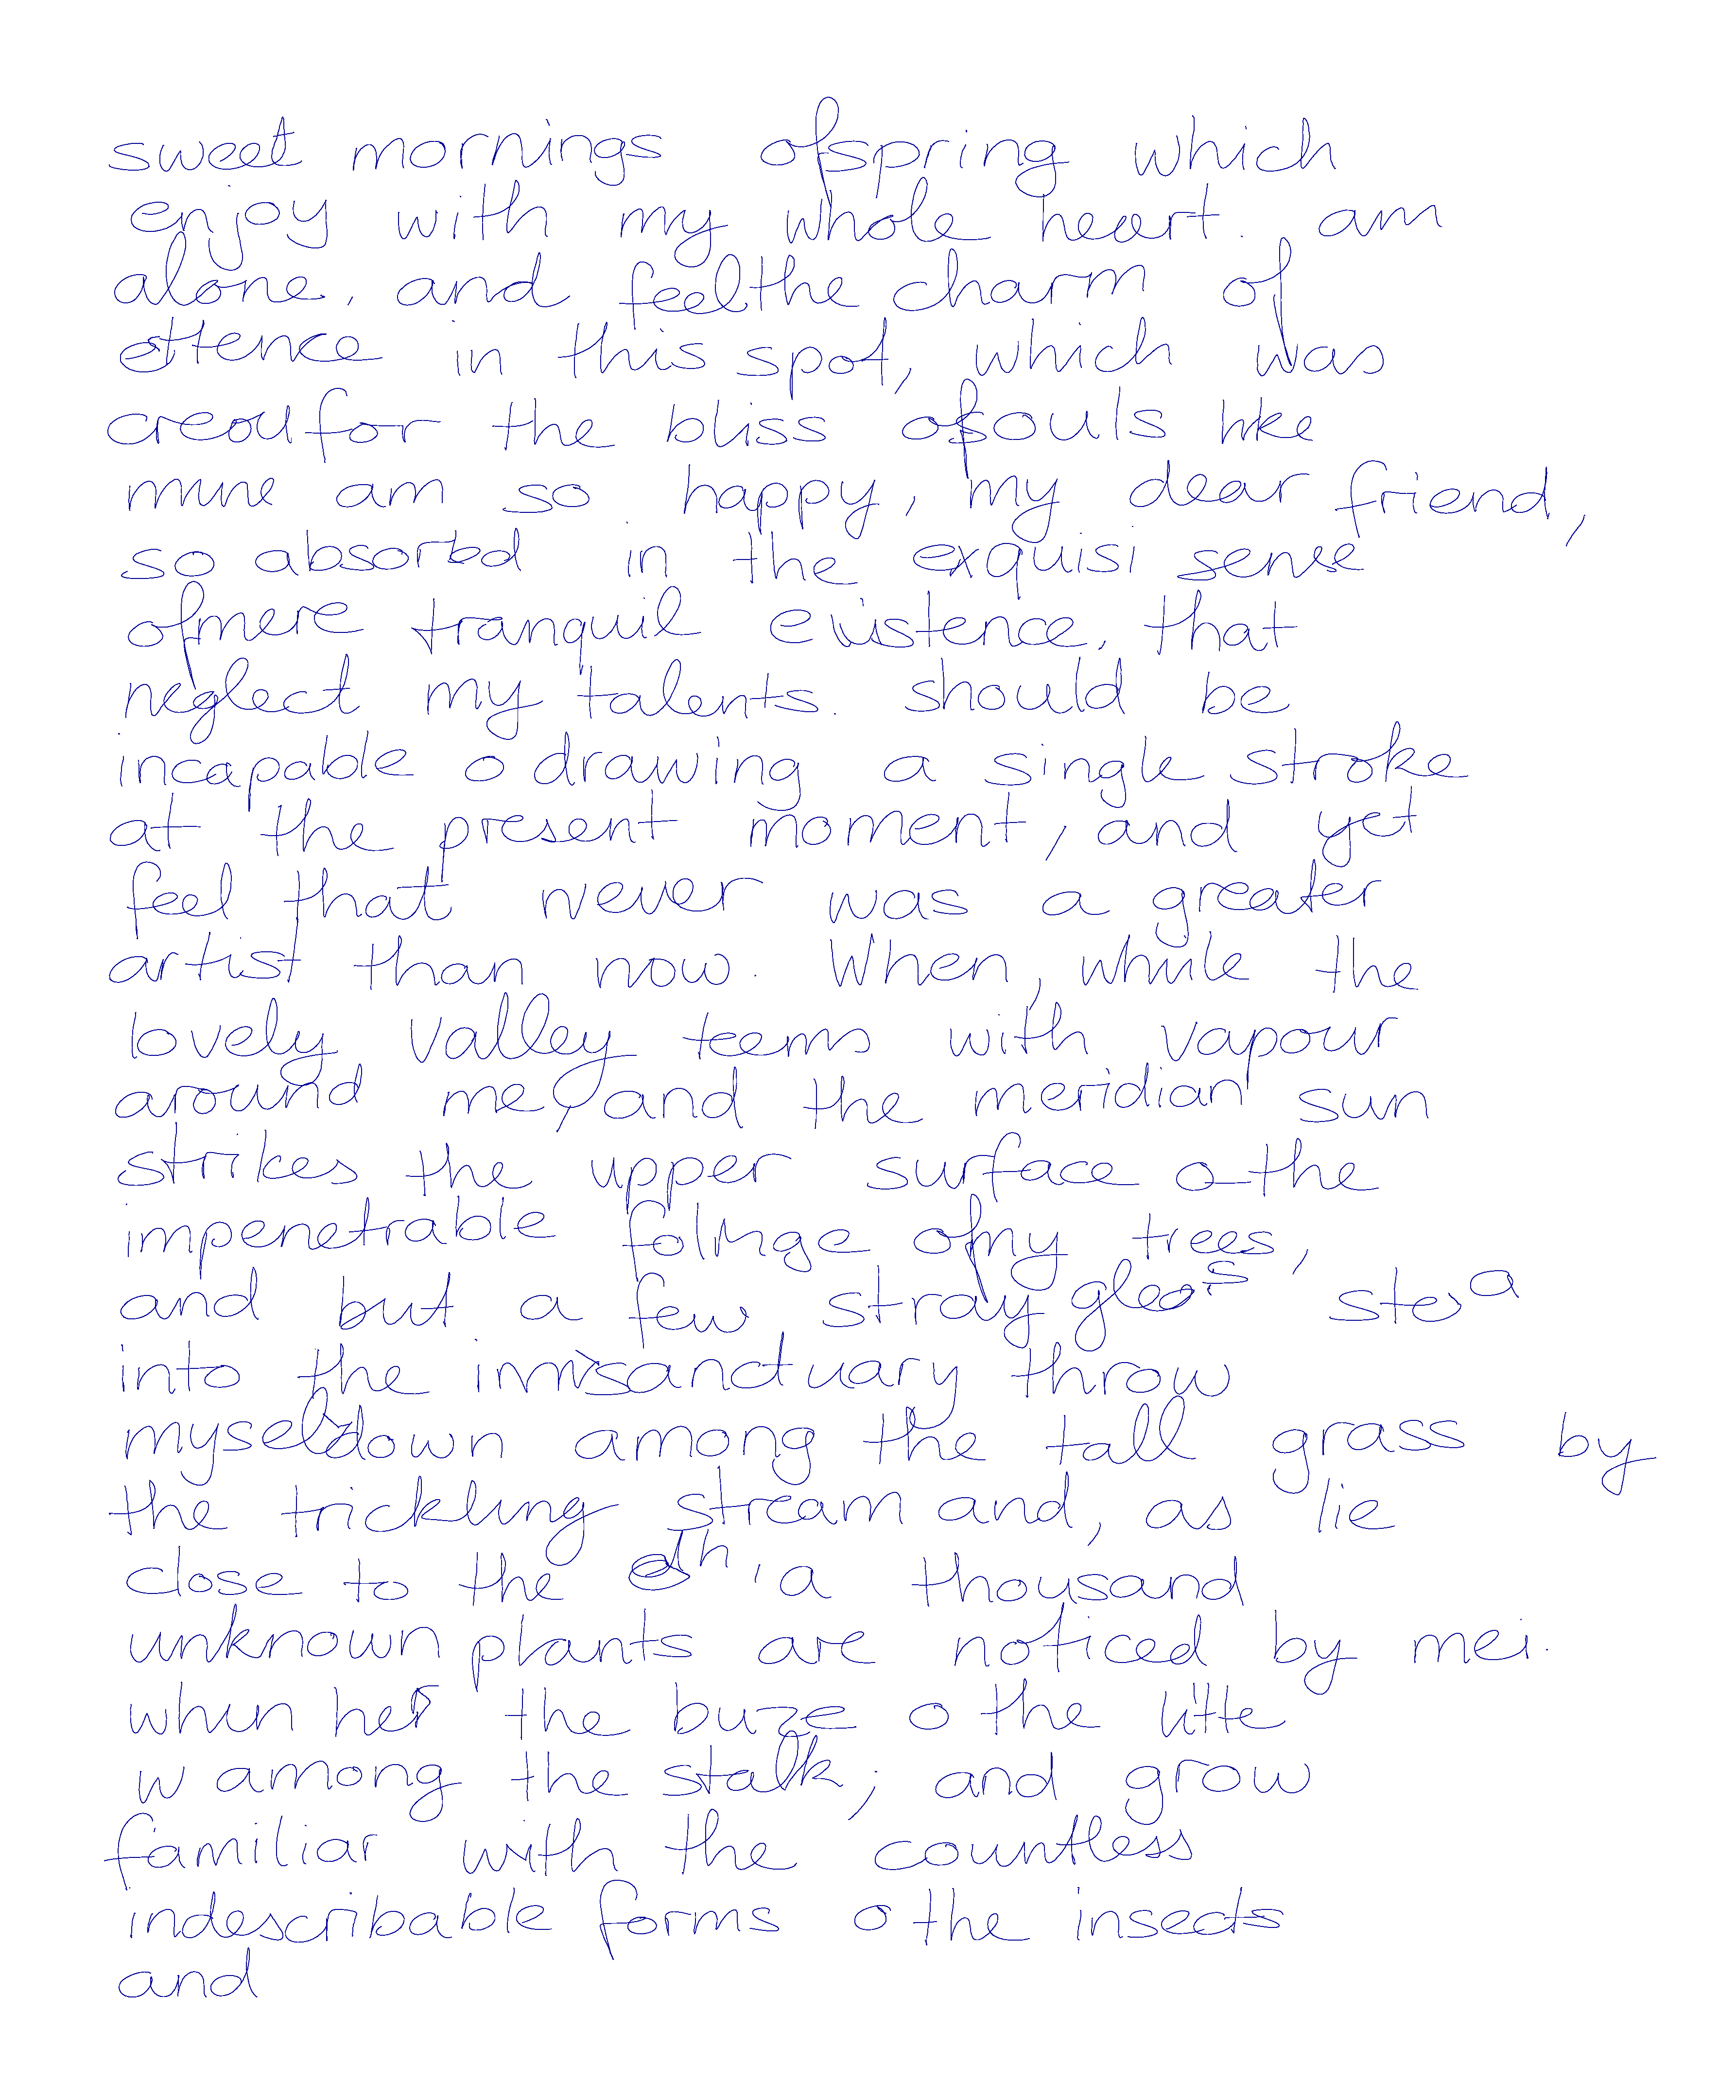 sweet mornings of spring which
enjoy with my whole heart. am
alone, and feel the charm of
in this spot, which was
for the bliss of souls like
mine am so happy, my dear friend,
so absorbd in the exquisi sense
of mere tranquil existence, that
neglect my talents. should be
incapable o drawing a single stroke
at the present moment, and yet
feel that never was a greater
artist than now. When, while the
lovely valley teems with vapour
around me, and the meridian sun
strikes the upper surface o the
impenetrable foliage of my trees,
and but a few stray
into the sanctuary throw
myself down among the tall grass by
the trickling stream and, as lie
close to the , a thousand
unknown plants are noticed by me:
when the buzz o the little
w among the stalk, and grow
familiar with the countless
indescribable forms o the insects
and